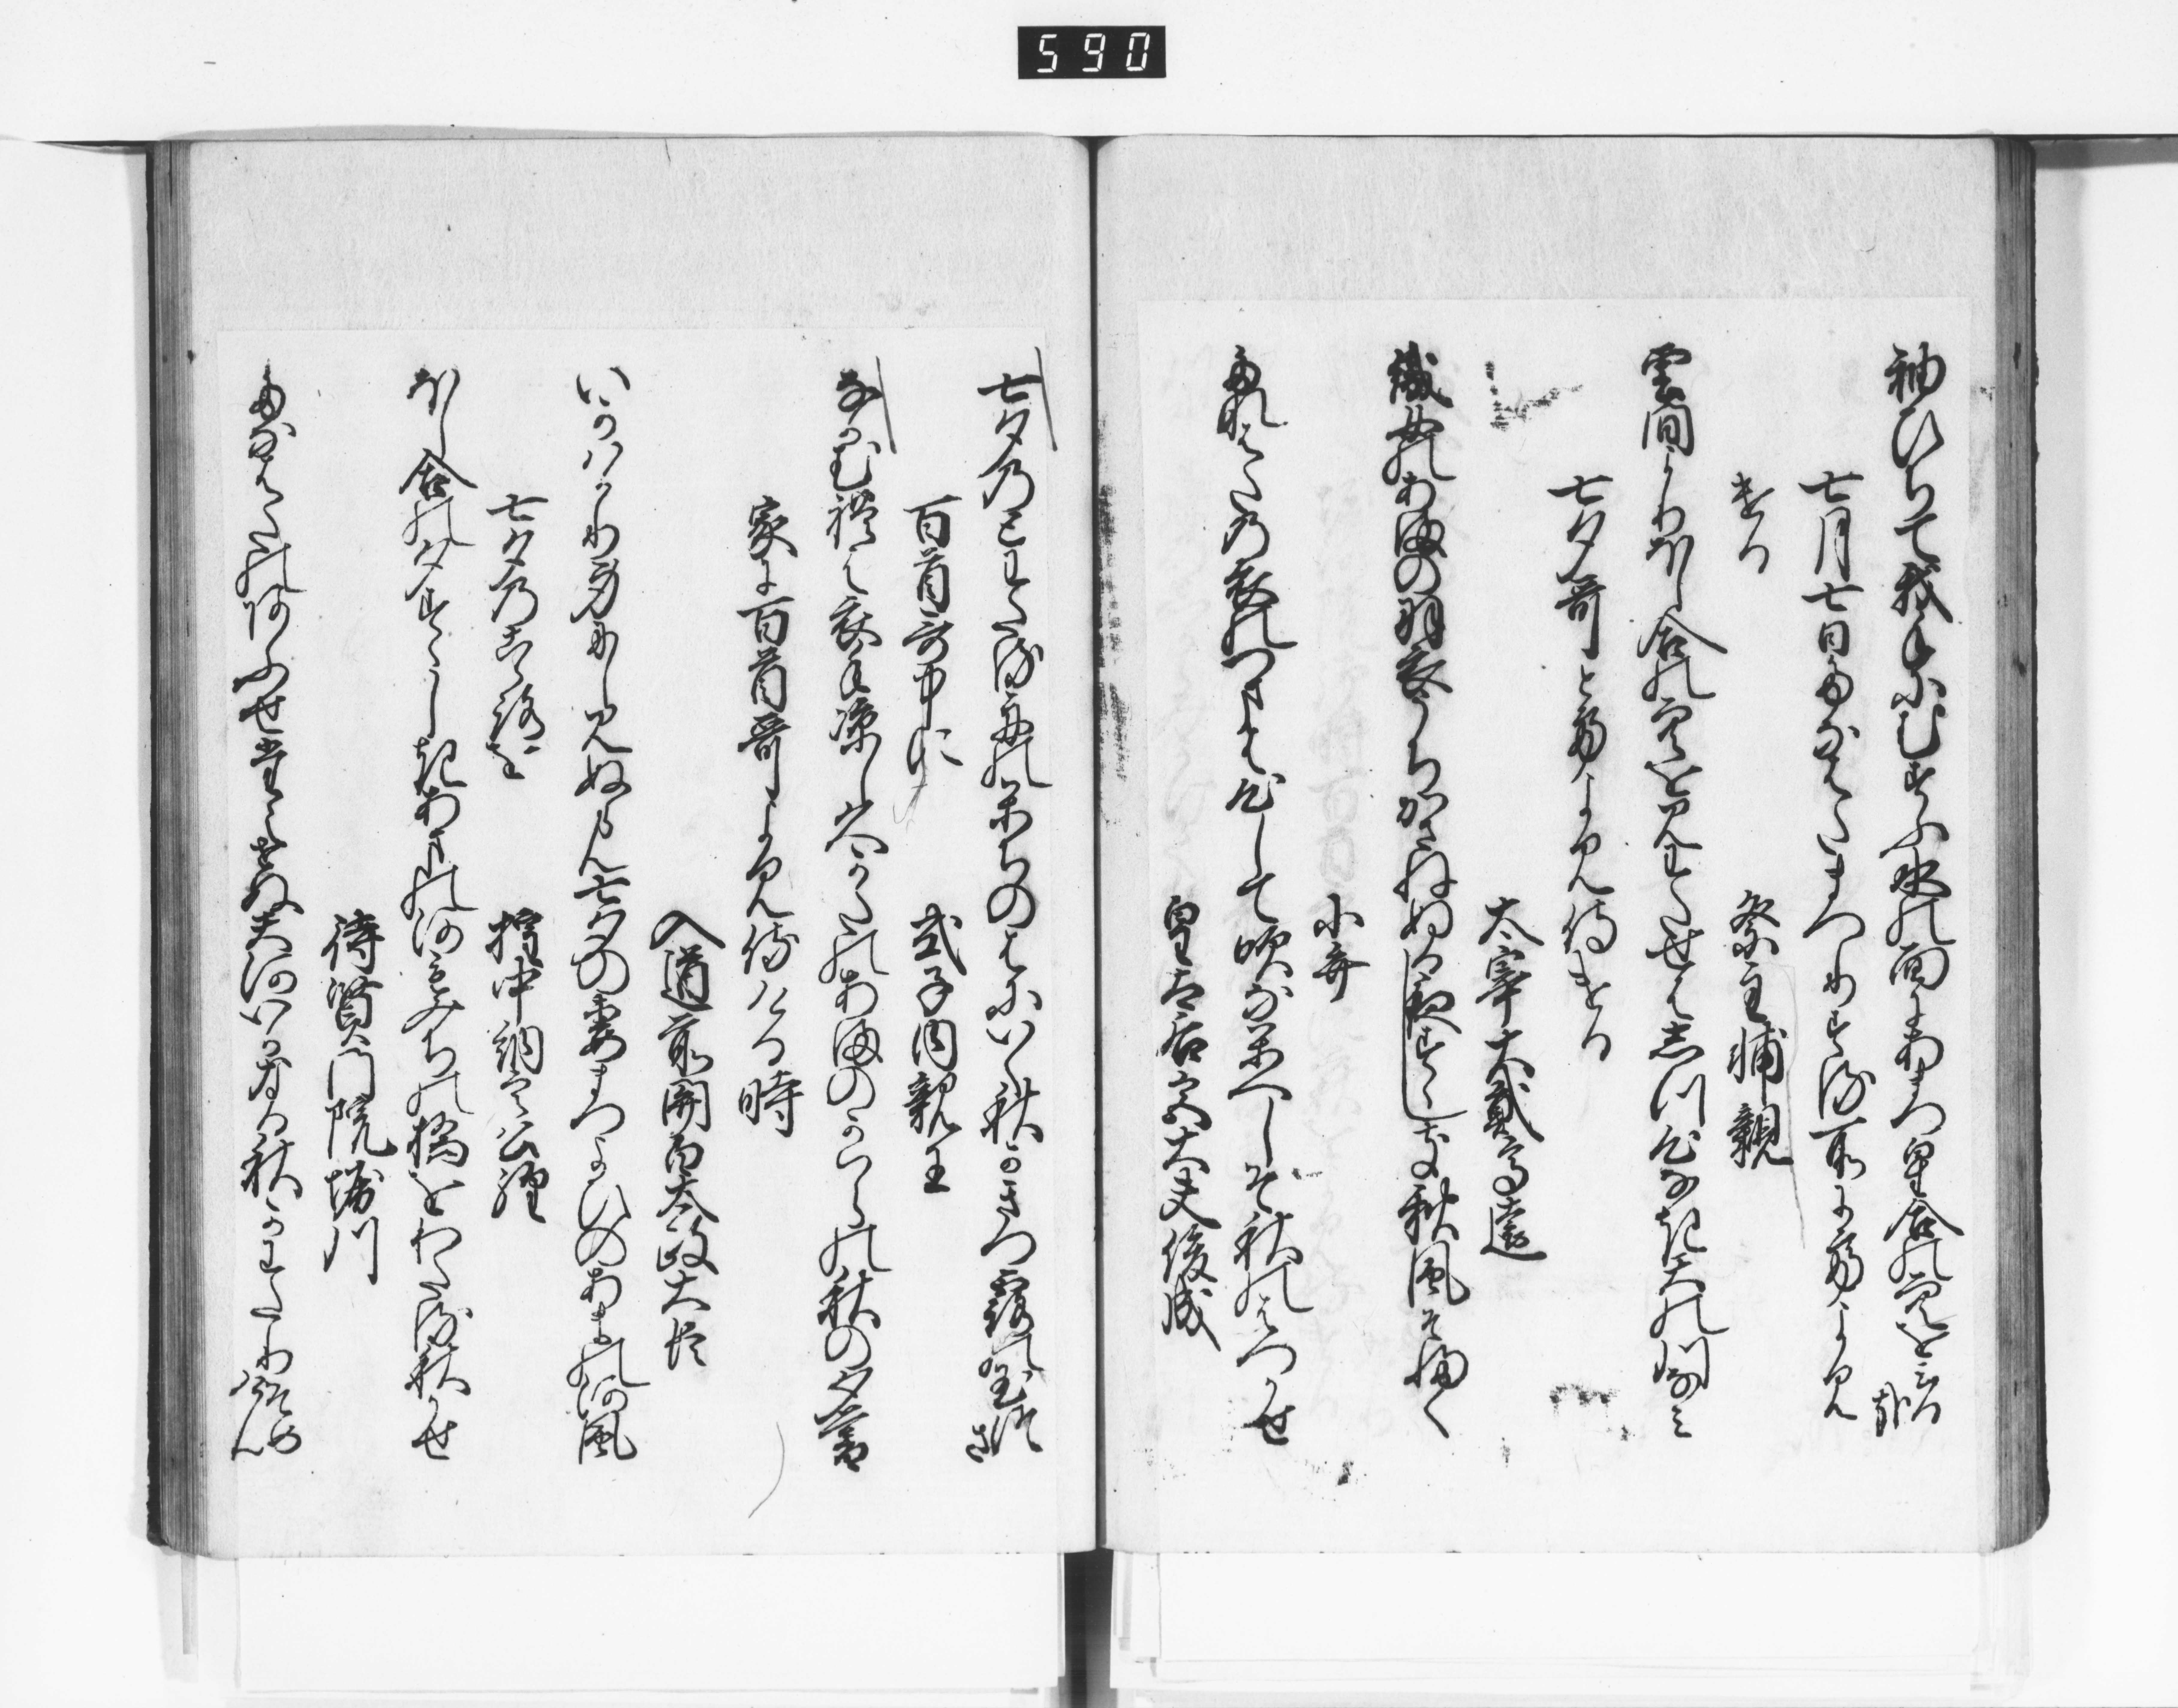 590
袖ひちて我手にむすふ水の面にあまつ星合の空を見る哉
七月七日たなはたまつりする所にてよみ
ける
祭主輔親
雲間よりほし合の空を見わたせはしつ心なき天の川なみ
七夕哥とてよみ侍ける
太宰大貳高遠
織女のあまの羽衣うちかさねぬる夜すゝしき秋風そ吹く
小弁
たなはたの衣のつまは心して吹なかへしそ秋のはつかせ
皇太后宮大夫俊成
七夕乃とわたる舟のかちのはにいく秋かきつ露の玉つさ
百首哥中に
式子内親王
なかむれは衣手涼し久かたのあまのかはらの秋の夕暮
家に百首哥よみ侍ける時
入道前関白太政大臣
いかはかり身にしみぬらん七夕の妻まつよひのあまの河風
七夕乃こゝろを
権中納言公経
ほし合の夕すゝしきあまの河もみちの橋をわたる秋かせ
待賢門院堀川
たなはたのあふせたえせぬ天河いかなる秋かわたりそめけん